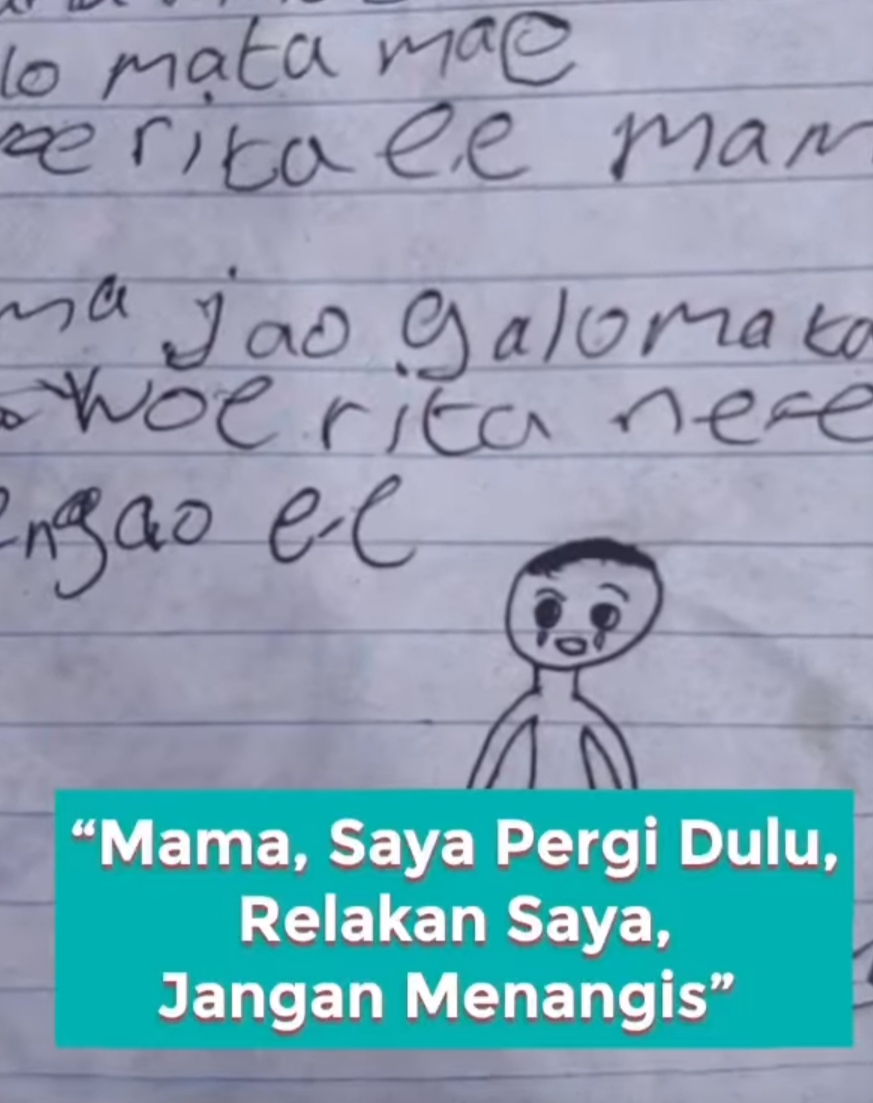 lo mata mae
rita ee mam
ma jao galo mata
woe rita nee
ngao ee
"Mama, Saya Pergi Dulu,
Relakan Saya,
Jangan Menangis"